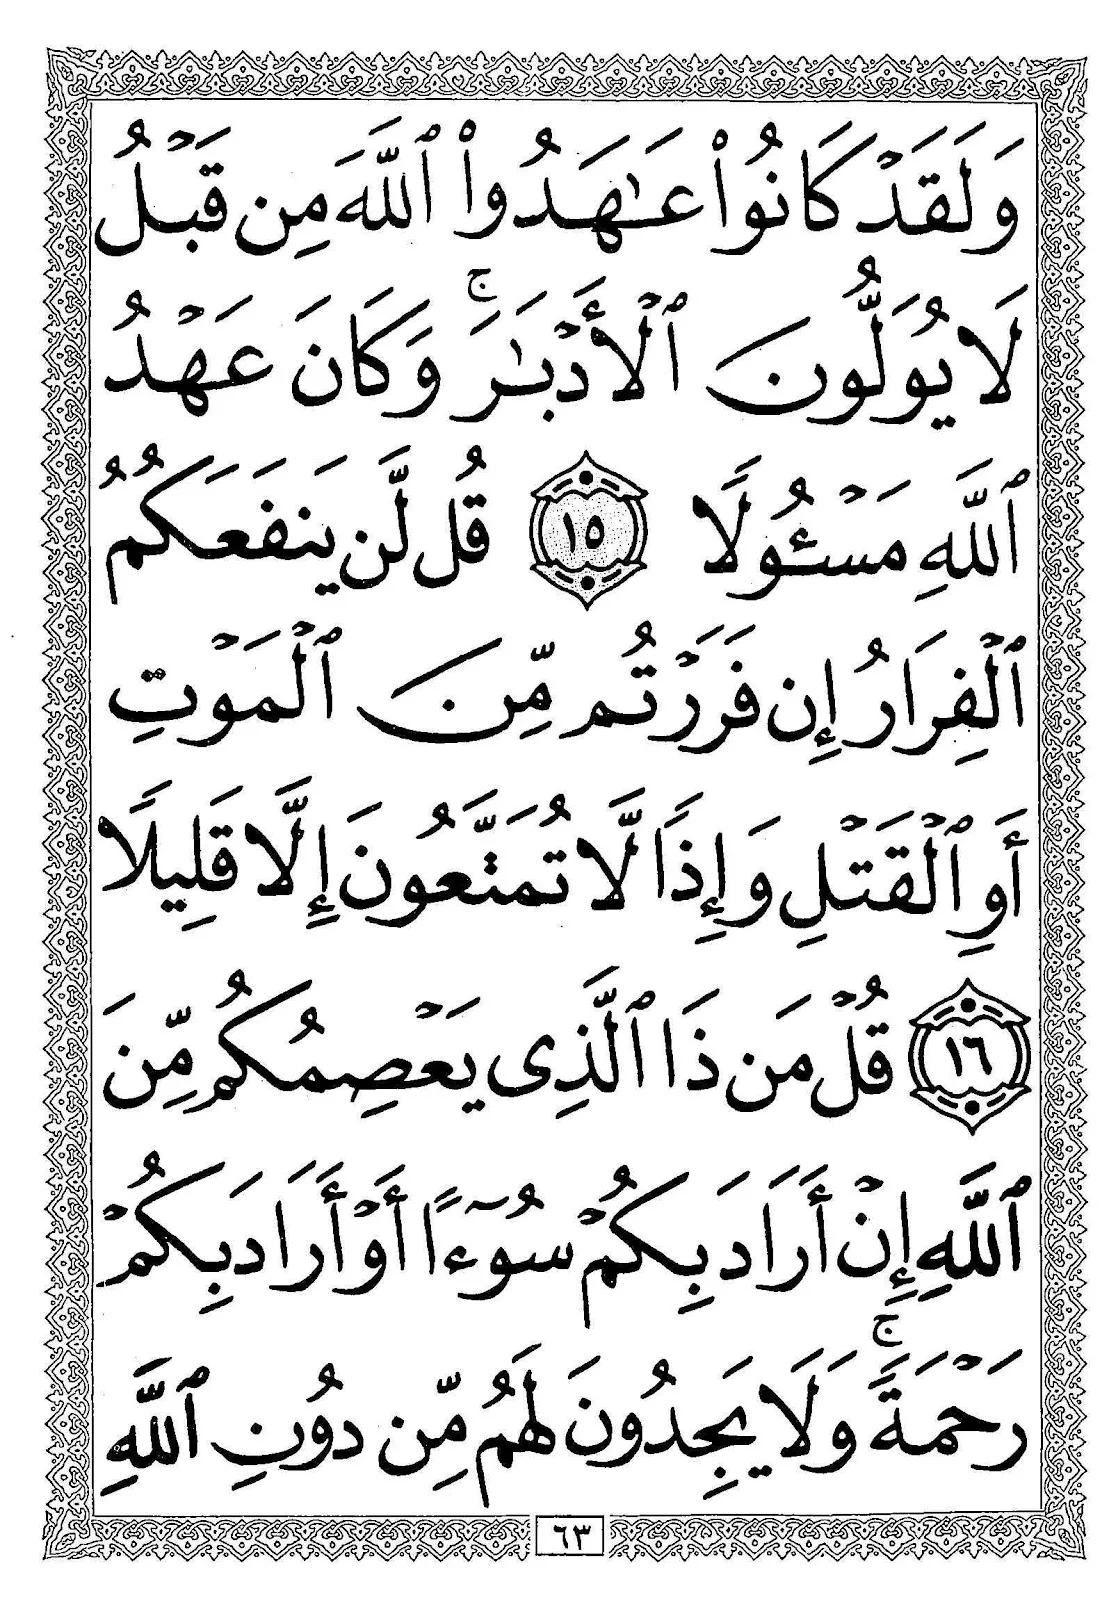 وَلَقَدْ كَانُوا۟ عَـٰهَدُوا۟ ٱللَّهَ مِن قَبْلُ
لَا يُوَلُّونَ ٱلْأَدْبَـٰرَ ۚ وَكَانَ عَهْدُ
ٱللَّهِ مَسْـُٔولًا ١٥ قُل لَّن يَنفَعَكُمُ
ٱلْفِرَارُ إِن فَرَرْتُم مِّنَ ٱلْمَوْتِ
أَوِ ٱلْقَتْلِ وَإِذًا لَّا تُمَتَّعُونَ إِلَّا قَلِيلًا
١٦ قُلْ مَن ذَا ٱلَّذِى يَعْصِمُكُم مِّنَ
ٱللَّهِ إِنْ أَرَادَ بِكُمْ سُوٓءًا أَوْ أَرَادَ بِكُمْ
رَحْمَةً ۚ وَلَا يَجِدُونَ لَهُم مِّن دُونِ ٱللَّهِ
٦٣